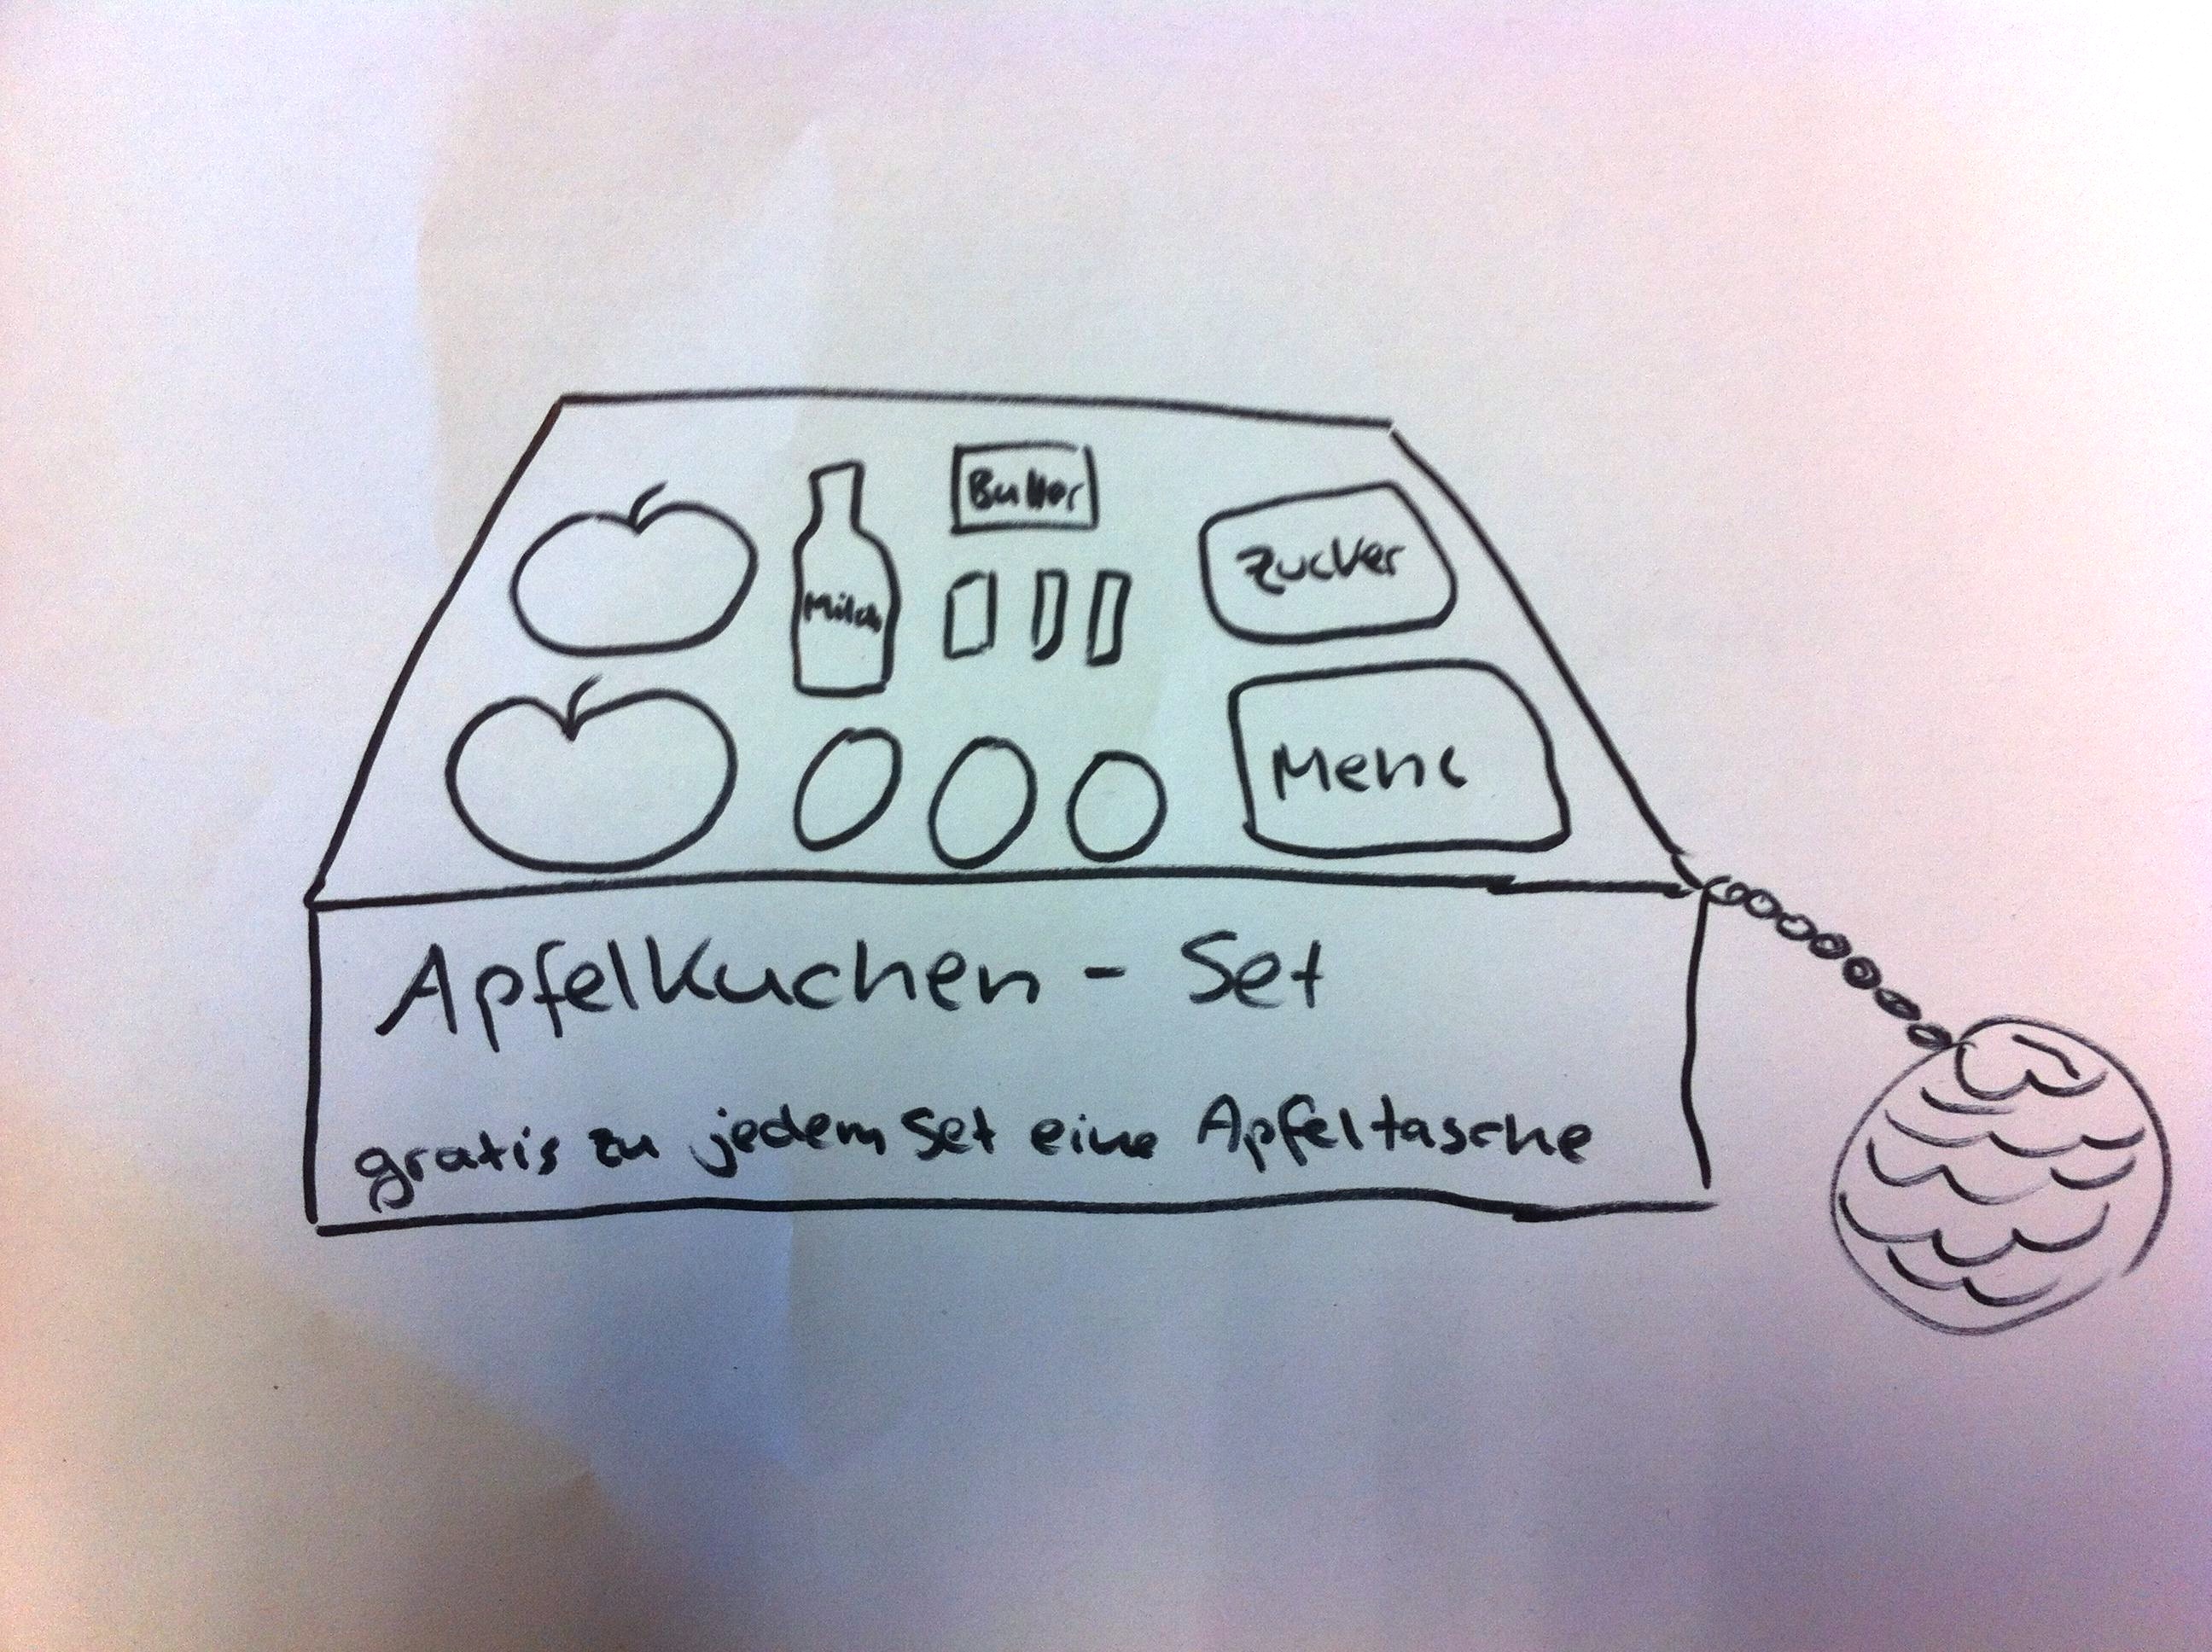 Butter
Milch
Zucker
Mehl
Apfelkuchen - Set
gratis zu jedem Set eine Apfeltasche